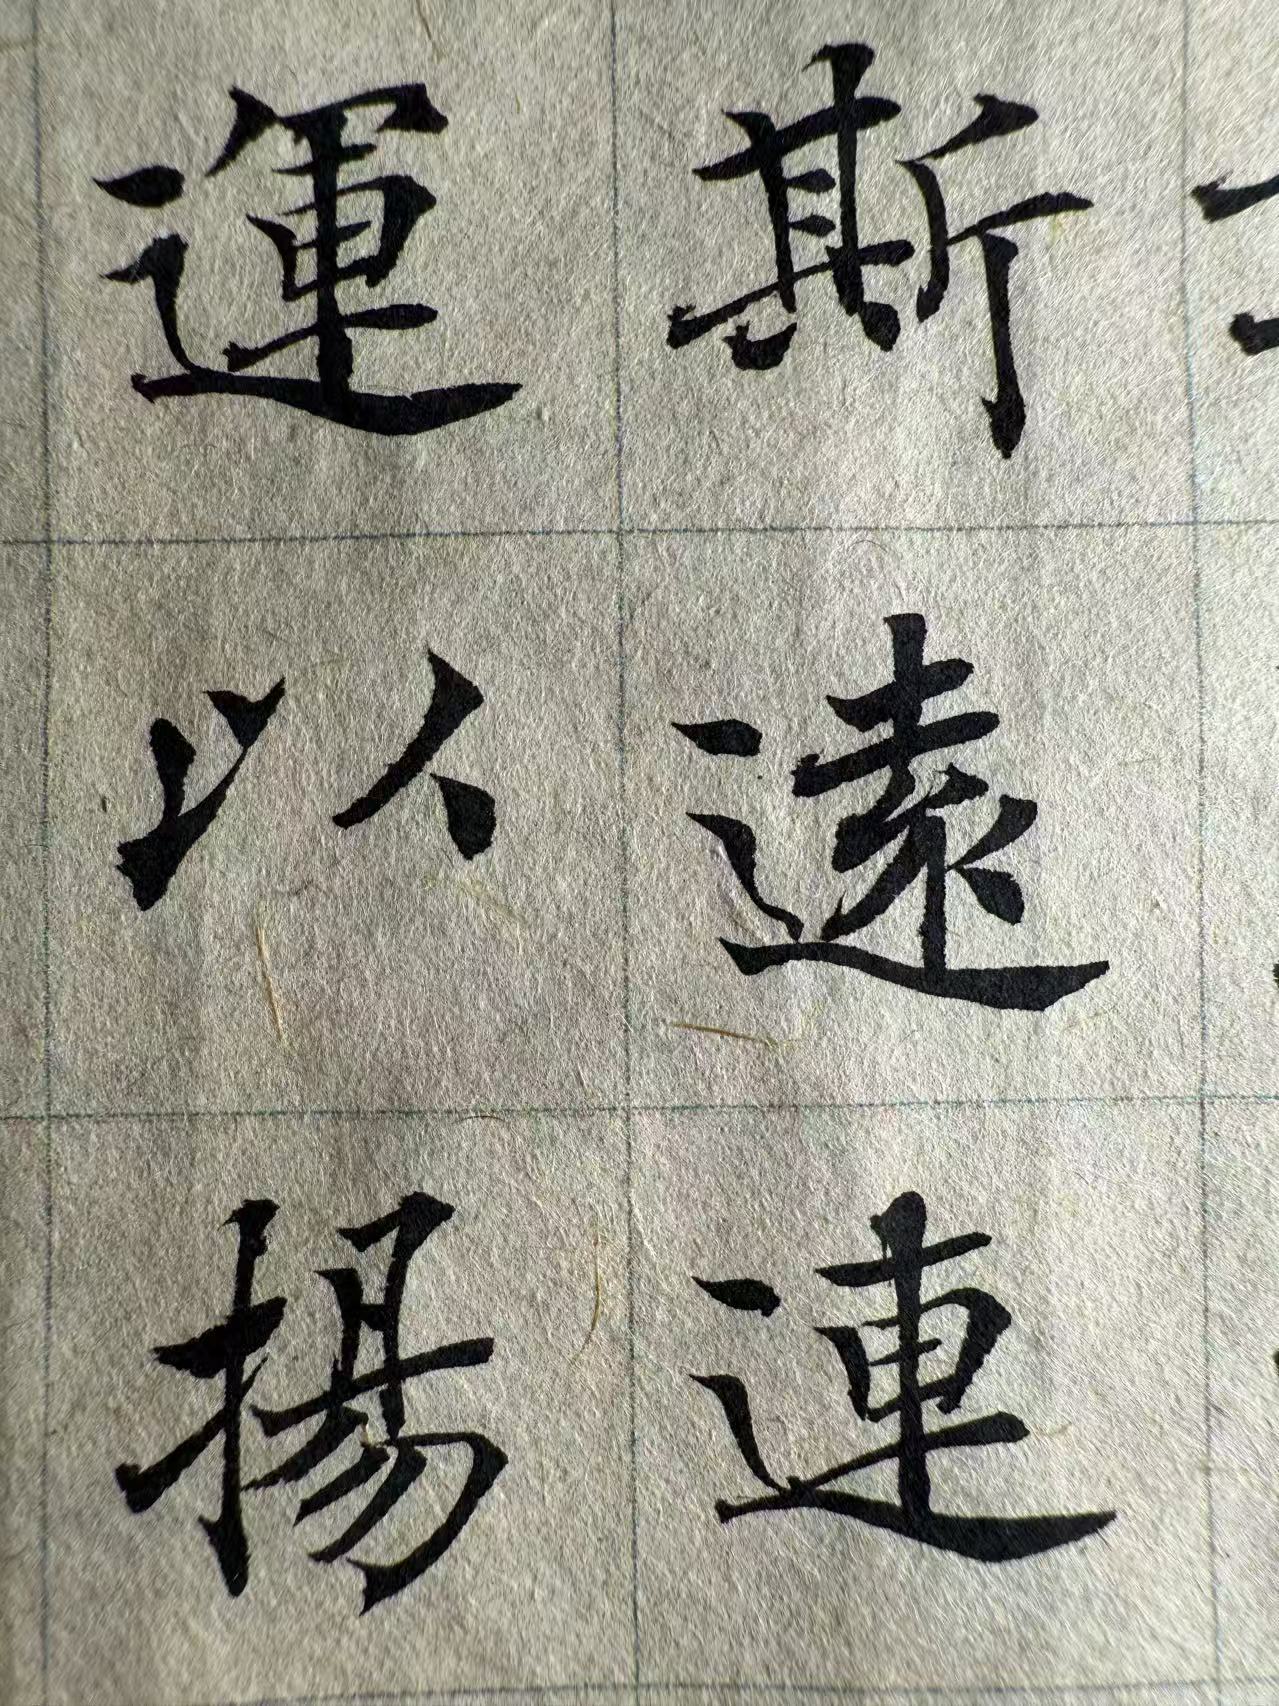 斯遠連
運以揚